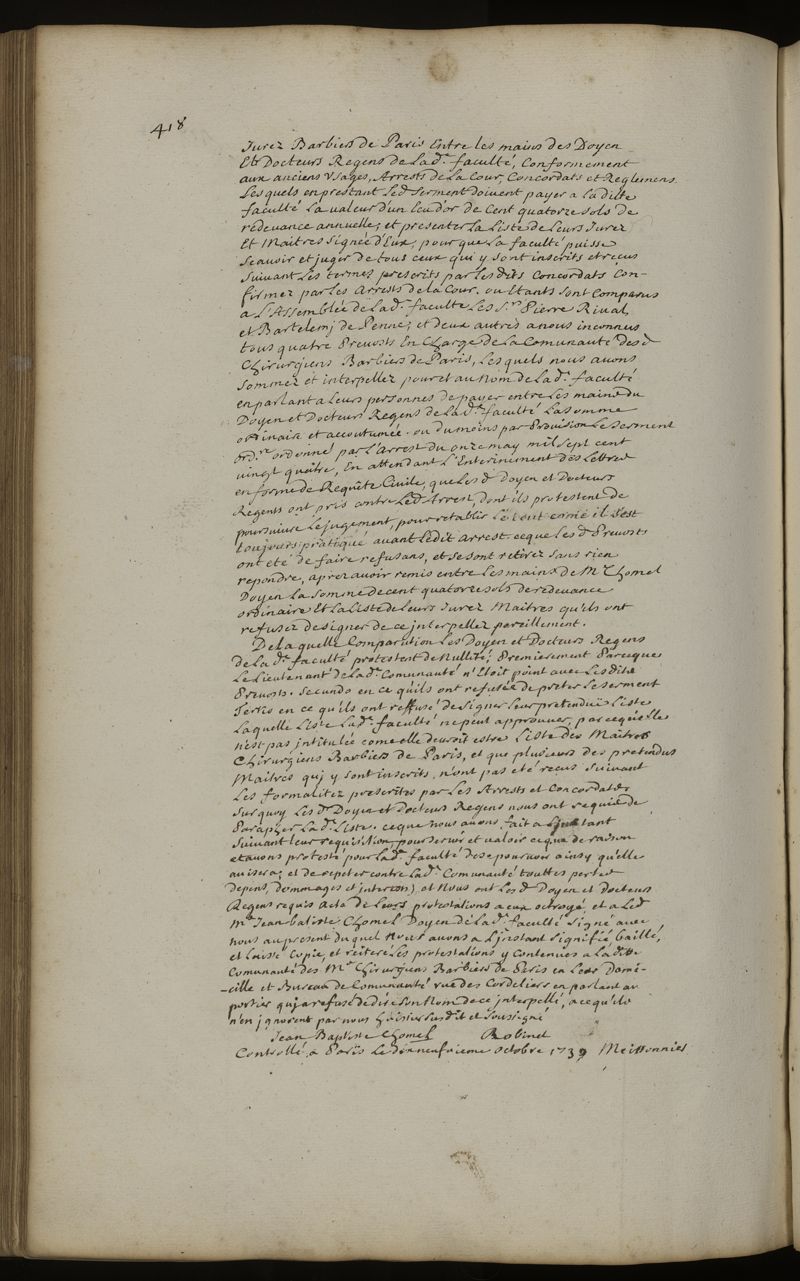 418
Jurez Barbiers de Paris Entre les mains des Doyen
Et Docteurs Regens de Lad.e faculté, Conformement
aux anciens Usages, Arrests de La Cour, Concordats et Reglemens.
Lesquels en prestant Led. Serment doivent payer a Ladite
faculté La valeur d'un Ecu d'or de Cent quatorze sols de
redevance annuelle; et presenter La Liste de Leurs Jurez
Et Maitres signée d'Eux, pour que La faculté puisse
Scavoir et juger de tous ceux qui y sont inscrits et recus
Suivant Les termes prescrits par Lesdits Concordats Con-
firmez par Les Arrests de La Cour. ou Etants sont Comparus
a L'Assemblée de Lad.e faculté Les S.rs Pierre Rival,
et Bartelemj de Penne; et deux autres a nous inconnus
tous quatre Prevosts En Charge de La Comunauté des d.
Chirurgiens Barbiers de Paris, Lesquels nous avons
Sommez et interpellez pour et au Nom de Lad.e faculté
en parlant a Leurs personnes de payer entre Les mains du
Doyen et Docteurs Regens de Lad.e faculté La somme
ordinaire et accoutumée. ou du moins par Provision Le Serment
ord.re ordonné par L'Arrest du onze may mil sept cent
vingt quatre, En attendant L'Enterinement des Lettres
en forme de Requête Civile, que Les d. Doyen et Docteurs
Regents ont pris contre Led. Arrest, dont ils protestent de
poursuivre Le jugement, pour retablir Le tout comme il s'est
toujours pratiqué avant Ledit Arrest. ce que Les d. Prevosts
ont eté de faire refusans, et se sont retirez sans rien
repondre, aprez avoir remis entre Les mains de M.r Chomel
Doyen La somme de cent quatorze sols de redevance
ordinaire Et La Liste de Leurs Jurez Maitres qu'ils ont
refusez de signer de ce jnterpellez pareillement.
De Laquelle Comparution Les Doyen et Docteurs Regens
de Lad.e faculté protestent de Nullité; Premierement Parceque
Le Lieutenant de Lad.e Comunauté n'Etoit point avec Lesdits
Prevosts. Secundo en ce qu'ils ont refusés de preter Le serment
Tertio en ce qu'ils ont reffusé de signer Leur pretendüe Liste
Laquelle Liste Lad.e faculté ne peut approuver, parcequ'Elle
n'est pas jntitulée come elle devroit estre Liste des Maitres
Chirurgiens Barbiers de Paris, et que plusieurs des pretendus
Maitres qui y sont inscrits, n'ont pas eté recus suivant
Les formalitez prescrites par Les Arrests et Concordats.
Surquoy Les d. Doyen et Docteurs Regens nous ont requis de
Parapher Lad.e Liste. ceque nous avons fait a L'jnstant
Suivant Leur requisition pour servir et valoir ce que de raison
et avons protesté pour Lad.e faculté de se pourvoir ainsy qu'elle
avisera; et de repeter contre Lad.e Comunauté touttes pertes
Depens, dommages et jnterests) et Nous ont Les d. Doyen et Docteurs
Regens requis Acte de Leurs protestations a eux octroyé, et a Led.
M.e Jean batiste Chomel Doyen de Lad.e faculté signé avec
nous au present duquel Nous avons a L'jnstant signifié, baillé,
et Laissé Copie, et réiteré Les protestations y contenues a Laditte
Comunauté des M.es Chirurgiens Barbiers de Paris en Leur Domi-
-cille et Bureau de Comunauté rue des Cordeliers en parlant au
portier qui a refusé de dire son Nom de ce jnterpellé, a ce qu'ils
n'en jgnorent par nous huissier susdit et soussigné
Jean Baptiste Chomel Robinet
Controllé a Paris Le dixneufvieme octobre 1739 Meissonnier